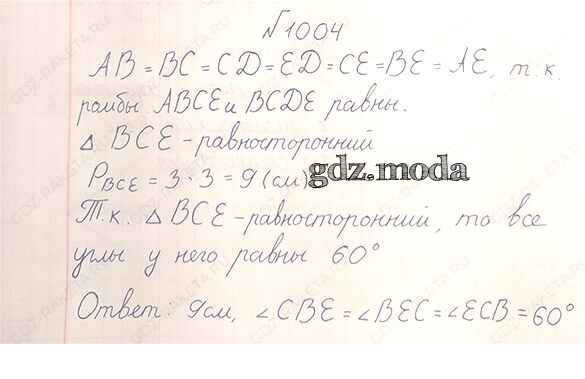 №1004
AB = BC = CD = ED = CE = BE = AE, т.к.
ромбы ABCE и BCDE равны.
△ BCE - равносторонний
P_BCE = 3 · 3 = 9 (см)
gdz.moda
Т.к. △ BCE - равносторонний, то все
углы у него равны 60°
Ответ: 9см, ∠CBE = ∠BEC = ∠ECB = 60°